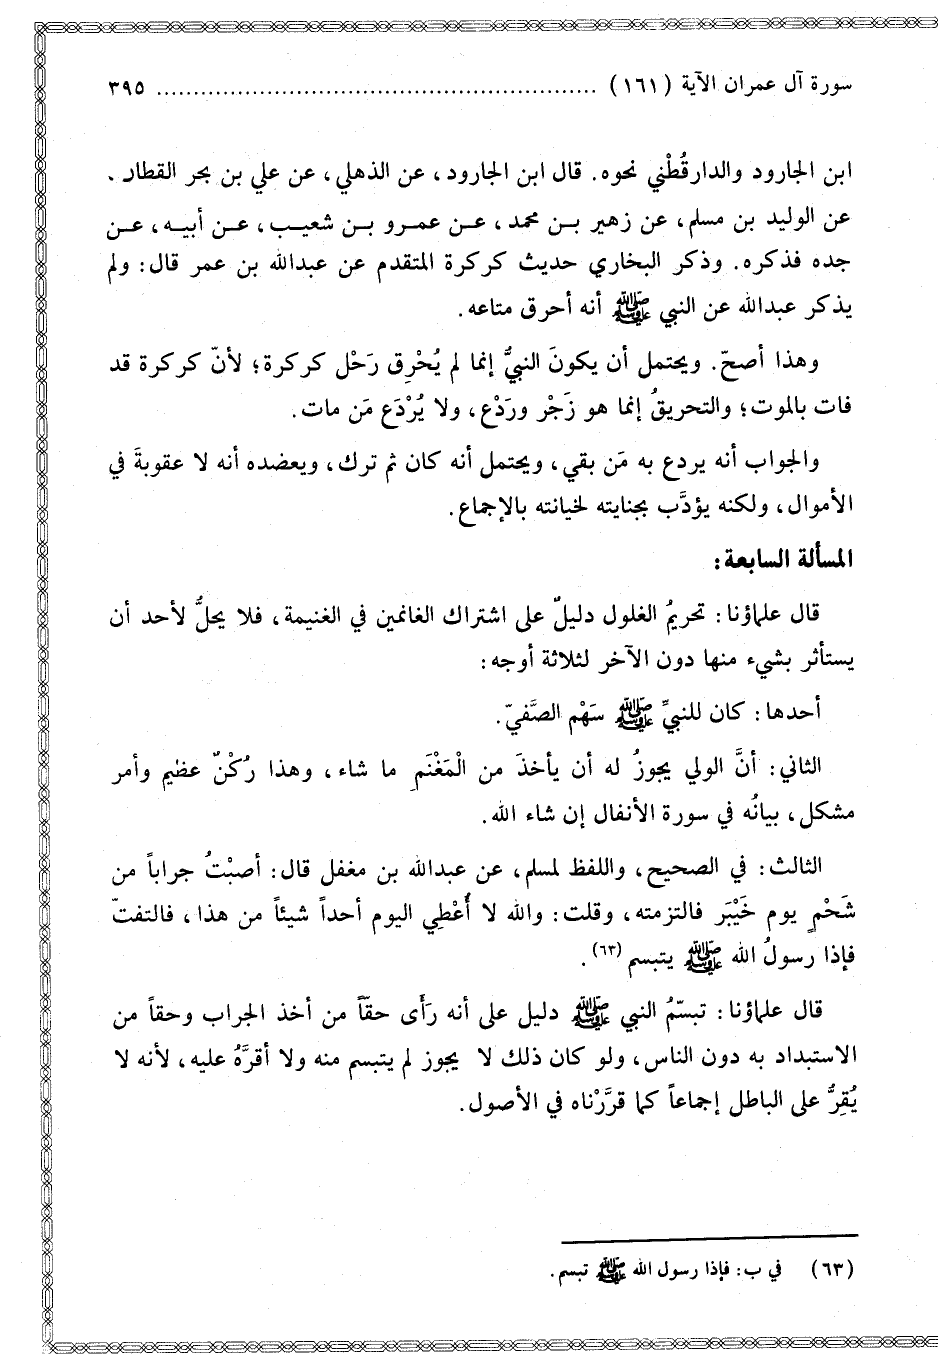 سورة آل عمران الآية (١٦١) ............................................................ ٣٩٥
ابن الجارود والدارقُطْني نحوه. قال ابن الجارود، عن الذهلي، عن علي بن بحر القطان.
عن الوليد بن مسلم، عن زهير بـن محمد، عـن عمـرو بـن شعيـب، عـن أبيـه، عـن
جده فذكره. وذكر البخاري حديث كركرة المتقدم عن عبدالله بن عمر قال: ولم
يذكر عبدالله عن النبي ﷺ أنه أحرق متاعه.
وهذا أصحّ. ويحتمل أن يكونَ النبيُّ إنما لم يُحْرِق رَحْل كركرة؛ لأنّ كركرة قد
فات بالموت؛ والتحريقُ إنما هو زَجْر وردْع، ولا يُرْدَع مَن مات.
والجواب أنه يردع به مَن بقي، ويحتمل أنه كان ثم ترك، ويعضده أنه لا عقوبةَ في
الأموال، ولكنه يؤدَّب بجنايته لخيانته بالإجماع.
المسألة السابعة:
قال علماؤنا: تحريمُ الغلول دليلٌ على اشتراك الغانمين في الغنيمة، فلا يحلُّ لأحد أن
يستأثر بشيء منها دون الآخر لثلاثة أوجه:
أحدها: كان للنبيِّ ﷺ سَهْم الصَّفيّ.
الثاني: أنَّ الولي يجوزُ له أن يأخذَ من الْمَغْنَمِ ما شاء، وهذا رُكْنٌ عظيم وأمر
مشكل، بيانُه في سورة الأنفال إن شاء الله.
الثالث: في الصحيح، واللفظ لمسلم، عن عبدالله بن مغفل قال: أصبْتُ جراباً من
شَحْمٍ يوم خَيْبَر فالتزمته، وقلت: والله لا أُعْطِي اليوم أحداً شيئاً من هذا، فالتفتّ
فإذا رسولُ الله ﷺ يتبسم (٦٣).
قال علماؤنا: تبسّمُ النبي ﷺ دليل على أنه رَأَى حقّاً من أخذ الجراب وحقاً من
الاستبداد به دون الناس، ولو كان ذلك لا يجوز لم يتبسم منه ولا أقرَّهُ عليه، لأنه لا
يُقِرُّ على الباطل إجماعاً كما قرَّرْناه في الأصول.
(٦٣) في ب: فإذا رسول الله ﷺ تبسم.